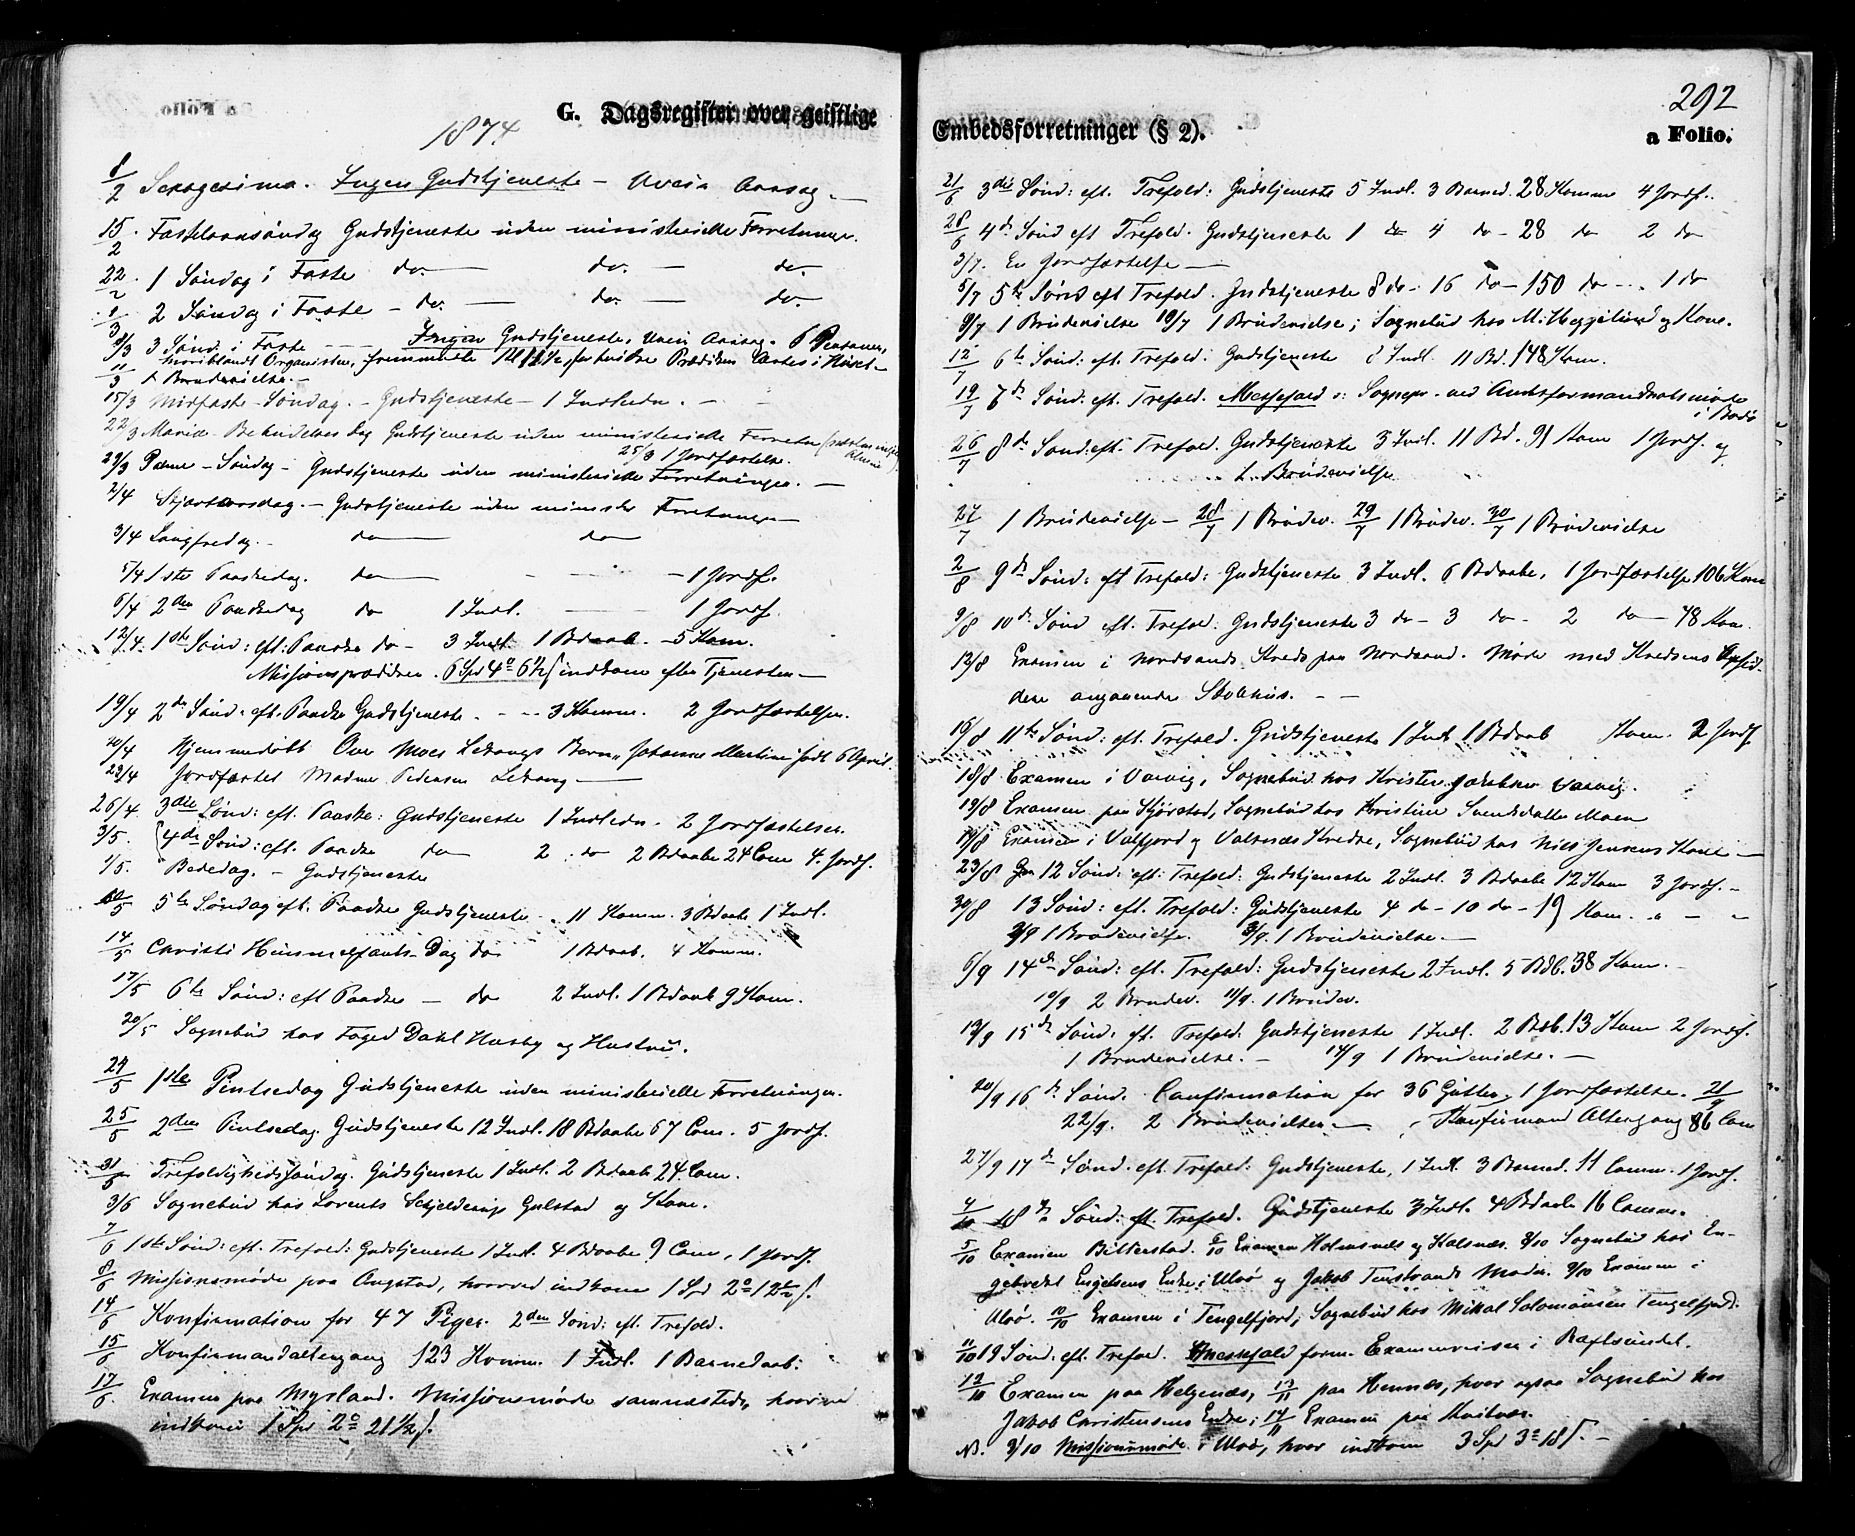 G. Dagsregister over geistlige
1874
8/2 Sexagesima. Ingen Gudstjeneste – Uveirs Aarsag. –
15/2 Fastelavnsøndag Gudstjeneste uden ministerielle Forretninger.
22/2 1 Søndag i Faste do. – do. – do.
1/3 2 Søndag i Faste – do. – do. – do.
8/3 3 Sønd. i Faste – – Ingen Gudstjeneste, Uveirs Aarsag. 6 Personer,
hvoriblandt Organisten, fremmødte til Kirke, for hvilke Prædiken læstes i Huset –
11/3 1 Brudevielse. –
15/3 Midfaste-Søndag. – Gudstjeneste – 1 Indledn. – –
22/3 Mariæ Bebudelses Dag Gudstjeneste uden ministerielle Forretn.
25/3 1 Jordfæstelse.
29/3 Palme-Søndag – Gudstjeneste uden ministerielle Forretninger. –
2/4 Skjærtorsdag. – Gudstjeneste uden minister Forretninger –
3/4 Langfredag. – do – do
5/4 1ste Paaskedag. do – – – 1 Jordf.
6/4 2den Paaskedag do 1 Indl. – 1 Jordf.
12/4. 1ste Sønd: eft: Paaske do – 3 Indl. 1 Bdaab. – 5 Kom.
Missionsprædiken. 6 Spd 4 o 6½ ſ indkom efter Tjenesten –
19/4 2den Sønd. eft. Paaske Gudstjeneste. – – 3 Komm. 2 Jordfæstelser.
20/4 Hjemmedøbt Ove Moes Lekangs Barn, Johanne Martine født 6 April.
22/4 Jordfæstet Madme Pedersen Lekang –
26/4 3die Sønd: eft. Paaske: Gudstjeneste 1 Indledn. 2 Jordfæstelser.
3/5. 4de Sønd: eft. Paaske do 2 do 2 Bdaabe 24 Com 4. Jordf.
1/5. Bededag. – Gudstjeneste
10/5 5te Søndag eft. Paaske Gudstjeneste – 11 Komm. 3 Bdaabe 1 Indl.
14/5 Christi Himmelfarts-Dag do 1 Bdaab. 4 Komm.
17/5 6te Sønd: eft Paaske – do 2 Indl. 1 Bdaab 9 Kom.
20/5 Sognebud hos Foged Dahl Husby og Hustru.
24/5 1ste Pintsedag Gudstjeneste uden ministerielle Forretninger.
25/5 2den Pintsedag. Gudstjeneste 12 Indl. 18 Bdaabe 67 Com. 5 Jordf.
31/5 Trefoldighedssøndag. Gudstjeneste 1 Indl. 2 Bdaabe 24 Com.
3/6 Sognebud hos Lorents Schjelderup Gulstad og Kone.
7/6 1ste Sønd: eft. Trefold: Gudstjeneste 1 Indl. 4 Bdaabe 9 Com, 1 Jordf.
8/6 Missionsmøde paa Angstad, hvorved indkom 1 Spd 2 o 12½ ſ.
14/6 Konfirmation for 47 Piger. 2den Sønd: eft. Trefold.
15/6 Konfirmandaltergang 123 Komm. 1 Indl. 1 Barnedaab.
17/6 Examen paa Mysland. Missionsmøde sammesteds, hvorved
indkom 1 Spd 2 o 21½ ſ.
292
Embedsforretninger (§ 2).
a Folio.
21/6 3die Sønd: eft. Trefold: Gudstjeneste 5 Indl. 3 Barned. 28 Komm 4 Jordf.
28/6 4de Sønd eft Trefold. Gudstjeneste 1 do 4 do – 28 do 2 do
3/7. En Jordfæstelse –
5/7 5te Sønd eft Trefold. Gudstjeneste 8 do – 16 do – 150 do – 1 do
9/7 1 Brudevielse 10/7 1 Brudevielse; Sognebud hos M. Heggelund og Kone.
12/7 6te Sønd: eft. Trefold: Gudstjeneste Indl. 11 Bd. 148 Kom.
19/7 7de Sønd. eft. Trefold. Messefald s: Sognepr. ved Amtsformandskabsmøde
i Bodø
26/7 8de Sønd: eft. Trefold. Gudstjeneste 3 Indl. 11 Bd. 91 Kom 1 Jordf. og
1 Brudevielse
27/7 1 Brudevielse – 28/7 1 Brudev. 29/7 1 Brudev. 30/7 1 Brudevielse
2/8 9de Sønd: eft Trefold: Gudstjeneste 3 Indl. 6 Bdaabe, 1 Jordfæstelse 106 Kom
9/8 10de Sønd eft. Trefold: Gudstjeneste 3 do – 3 do – 2 do – 78 Kom.
12/8 Examen i Nordsands Kreds paa Nordsand. Møde med Kredsens Opsid-
dere angaaende Skolehus. – –
16/8 11te Sønd: eft. Trefold. Gudstjeneste 1 Indl 1 Bdaab Kom. 2 Jordf
18/8 Examen i Vaavig, Sognebud hos Krister Jakobsen Vaavig.
19/8 Examen paa Skjørstad, Sognebud hos Kristine Svendsdatter Moen
Examen i Valfjord og Valsnæs Kredse, Sognebud hos Niels Jensens Kone –
23/8 12 Sønd: eft: Trefold: Gudstjeneste 2 Indl. 3 Bdaabe 12 Kom 3 Jordf. –
30/8 13 Sønd: eft. Trefold: Gudstjeneste 4 do – 10 do – 19 Kom. " – –
2/9 1 Brudevielse. 3/9. 1 Brudevielse. –
6/9 14de Sønd: eft. Trefold: Gudstjeneste 2 Indl. 5 Bdb. 38 Kom. –
10/9 2 Brudev. 11/9. 1 Brudev.
13/9 15de Sønd. eft. Trefold. Gudstjeneste 1 Indl. 2 Bdb. 13 Kom 2 Jordf.
1 Brudevielse. – 14/9 1 Brudevielse. –
20/9 16de Sønd. Confirmation for 36 Gutter. 1 Jordfæstelse. 21/9
22/9. 2 Brudevielser – Konfirmand Altergang 86 Com
27/9 17de Sønd. eft. Trefold: Gudstjeneste, 1 Indl. 3 Barned. 11 Comm. 1 Jordf.
4/10 18de Sønd: eft. Trefold. Gudstjeneste 3 Indl. 4 Bdaabe 16 Comm.
5/10 Examen Bitterstad. 6/10 Examen Holmsnæs og Kalsnæs. 8/10 Sognebud hos En-
gebret Engelsens Enke i Ulvø og Jakob Tenstrands Moder. 9/10 Examen i
Ulvø. 10/10 Examen i Tengelfjord, Sognebud hos Mikal Salomonsen Tengelfjord.
11/10 19 Sønd: eft. Trefold. Messefald form. Examensreiser i Raftsundet.
12/10 Examen paa Helgenæs, 13/11 paa Hennæs, hvor ogsaa Sognebud hos
Jakob Christensens Enke; 14/11 Examen paa
NB. 9/10 Missionsmøde i Ulvø, hvor indkom 3 Spd 3 o 18 ſ. –